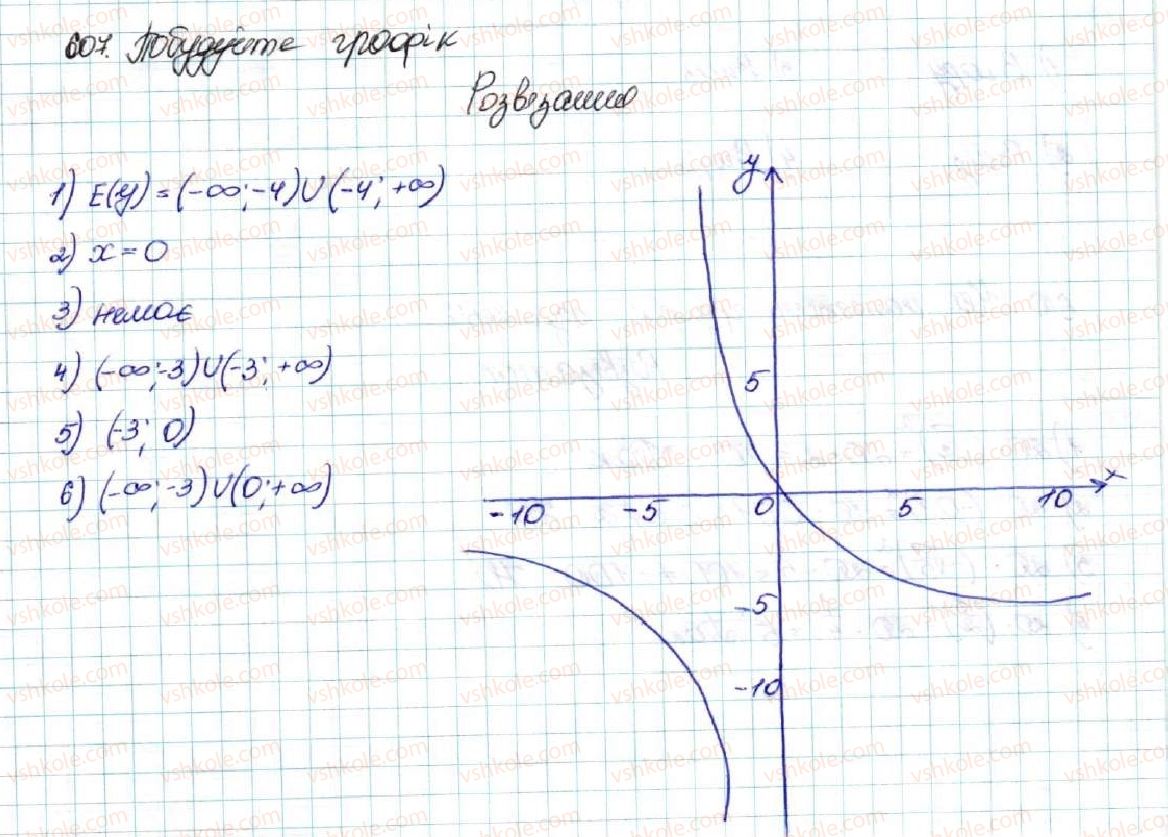 607. Побудуйте графік
Розв'язання
1) E(y) = (-∞; -4) ∪ (-4; +∞)
2) x = 0
3) немає
4) (-∞; -3) ∪ (-3; +∞)
5) (-3; 0)
6) (-∞; -3) ∪ (0; +∞)
y
5
x
-10 -5 0 5 10
-5
-10
vshkole.com